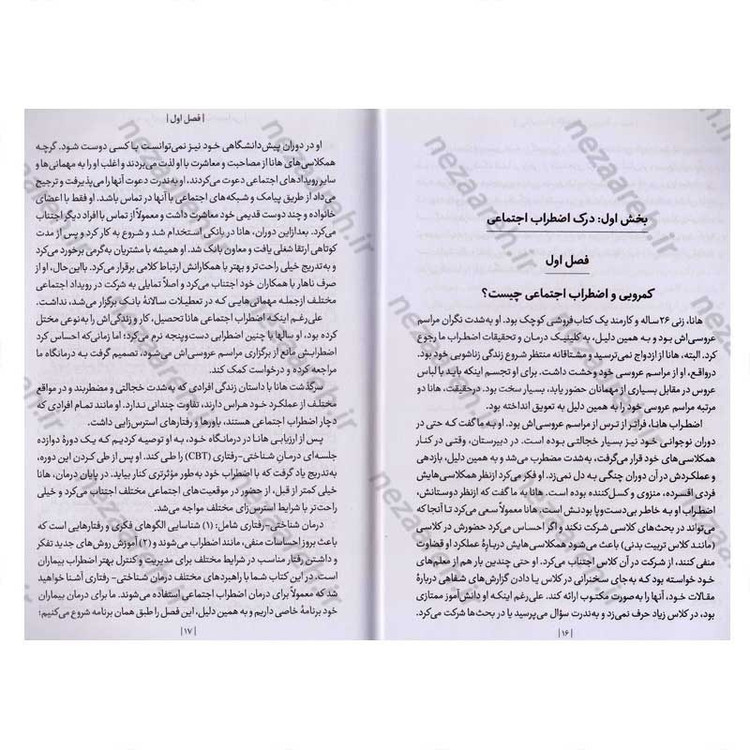 بخش اول: درک اضطراب اجتماعی
فصل اول
کمرویی و اضطراب اجتماعی چیست؟
هانا، زنی ۲۶ساله و کارمند یک کتاب‌فروشی کوچک بود. او به‌شدت نگران مراسم
عروسی‌اش بود و به همین دلیل، به کلینیک درمان و تحقیقات اضطراب ما رجوع
کرد. البته، هانا از ازدواج نمی‌ترسید و مشتاقانه منتظر شروع زندگی زناشویی خود بود.
درواقع، او از مراسم عروسی خود وحشت داشت. برای او تجسم اینکه باید با لباس
عروس در مقابل بسیاری از مهمانان حضور یابد، بسیار سخت بود. درحقیقت، هانا دو
مرتبه مراسم عروسی خود را به همین دلیل به تعویق انداخته بود.
اضطراب هانا، فراتر از ترس از مراسم عروسی‌اش بود. او به ما گفت که حتی در
دوران نوجوانی خود نیز بسیار خجالتی بوده است. در دبیرستان، وقتی در کنار
همکلاسی‌های خود قرار می‌گرفت، به‌شدت مضطرب می‌شد و به‌گفتهٔ خود او، اضطراب
و عملکردش در آن دوران چنگی به دل نمی‌زد. او فکر می‌کرد ازنظر همکلاسی‌هایش
فردی افسرده، منزوی و کسل‌کننده بوده است. هانا، به ما گفت که ازنظر دوستانش،
اضطراب او به خاطر بی‌دست‌وپا بودنش است. هانا معمولاً سعی می‌کرد تا آنجا که
می‌تواند در بحث‌های کلاسی شرکت نکند و اگر احساس می‌کرد حضورش در کلاسی
(مانند کلاس تربیت بدنی) باعث می‌شود همکلاسی‌هایش دربارهٔ عملکرد او قضاوت
منفی کنند، از شرکت در آن کلاس اجتناب می‌کرد. او حتی چندین بار هم از معلم‌های
خود خواسته بود که به‌جای سخنرانی در کلاس یا دادن گزارش‌های شفاهی دربارهٔ
مقالات خود، آنها را به‌صورت مکتوب ارائه کند. علی‌رغم اینکه او دانش‌آموز ممتازی
بود، در کلاس زیاد حرف نمی‌زد و به‌ندرت سؤال می‌پرسید یا در بحث‌ها شرکت می‌کرد.
| ۱۶ |
| فصل اول |
او در دوران پیش‌دانشگاهی خود نیز نمی‌توانست با کسی دوست شود. گرچه
همکلاسی‌های هانا از مصاحبت و معاشرت با او لذت می‌بردند و اغلب او را به مهمانی‌ها و
سایر رویدادهای اجتماعی دعوت می‌کردند، او به‌ندرت دعوت آنها را می‌پذیرفت و ترجیح
می‌داد از طریق پیامک و شبکه‌های اجتماعی با آنها در تماس باشد. او فقط با اعضای
خانواده و چند دوست قدیمی خود معاشرت داشت و معمولاً از تماس با افراد دیگر اجتناب
می‌کرد. بعدازاین دوران، هانا در بانکی استخدام شد و شروع به کار کرد و پس از مدت
کوتاهی ارتقا شغلی یافت و معاون بانک شد. او همیشه با مشتریان به‌گرمی برخورد می‌کرد
و به‌تدریج خیلی راحت‌تر و بهتر با همکارانش ارتباط کلامی برقرار می‌کرد. بااین‌حال، او از
صرف ناهار با همکاران خود اجتناب می‌کرد و اصلاً تمایلی به شرکت در رویداد اجتماعی
مختلف ازجمله مهمانی‌هایی که در تعطیلات سالانهٔ بانک برگزار می‌شد، نداشت.
علی‌رغم اینکه اضطراب اجتماعی هانا تحصیل، کار و زندگی‌اش را به‌نوعی مختل
کرده بود، او سالها با چنین اضطرابی دست‌وپنجه نرم می‌کرد؛ اما زمانی‌که احساس کرد
اضطرابش مانع از برگزاری مراسم عروسی‌اش می‌شود، تصمیم گرفت به درمانگاه ما
مراجعه کرده و درخواست کمک کند.
سرگذشت هانا با داستان زندگی افرادی که به‌شدت خجالتی و مضطربند و در مواقع
مختلف از عملکرد خود هراس دارند، تفاوت چندانی ندارد. او مانند تمام افرادی که
دچار اضطراب اجتماعی هستند، باورها و رفتارهای استرس‌زایی داشت.
پس از ارزیابی هانا در درمانگاه خود، به او توصیه کردیم که یک دورهٔ دوازده
جلسه‌ای درمان شناختی-رفتاری (CBT) را طی کند. او پس از طی کردن این دوره،
به‌تدریج یاد گرفت که با اضطراب خود به‌طور مؤثرتری کنار بیاید. در پایان درمان، هانا
خیلی کمتر از قبل، از حضور در موقعیت‌های اجتماعی مختلف اجتناب می‌کرد و خیلی
راحت‌تر با شرایط استرس‌زای مختلف مواجه می‌شد.
درمان شناختی-رفتاری شامل: (۱) شناسایی الگوهای فکری و رفتارهایی است که
باعث بروز احساسات منفی، مانند اضطراب می‌شوند و (۲) آموزش روش‌های جدید تفکر
و داشتن رفتار مناسب در شرایط مختلف برای مدیریت و کنترل بهتر اضطراب بیماران
است. در این کتاب شما با راهبردهای مختلف درمان شناختی- رفتاری آشنا خواهید
شد که معمولاً برای درمان اضطراب اجتماعی استفاده می‌شوند. ما برای درمان بیماران
خود برنامهٔ خاصی داریم و به همین دلیل، این فصل را طبق همان برنامه شروع می‌کنیم:
| ۱۷ |
nezaareh.ir